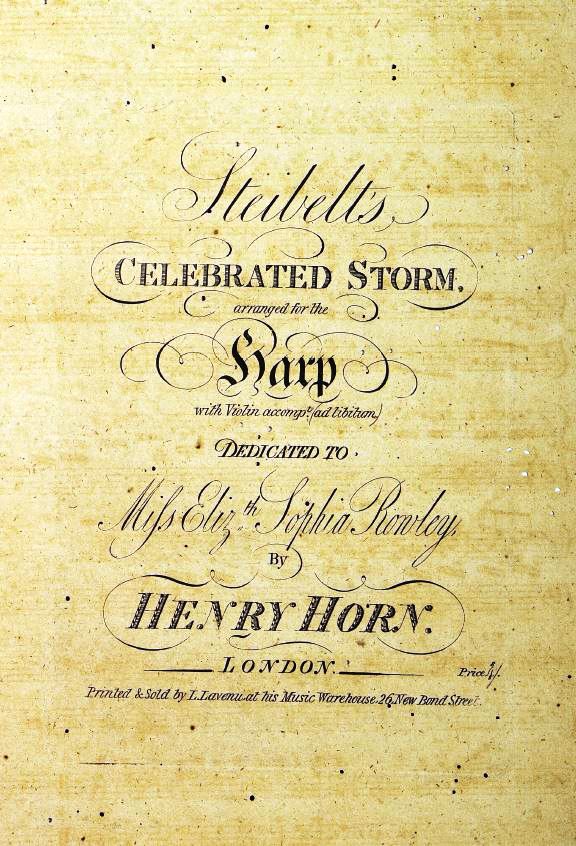 Steibelt's,
CELEBRATED STORM.
arranged for the
Harp
with Violin accomp.t (ad libitum,)
DEDICATED TO
Miſs Eliz.th Sophia Rowley,
By
HENRY HORN.
LONDON.
Price 4/.
Printed & Sold by L. Lavenu, at his Music Warehouse, 26, New Bond Street.